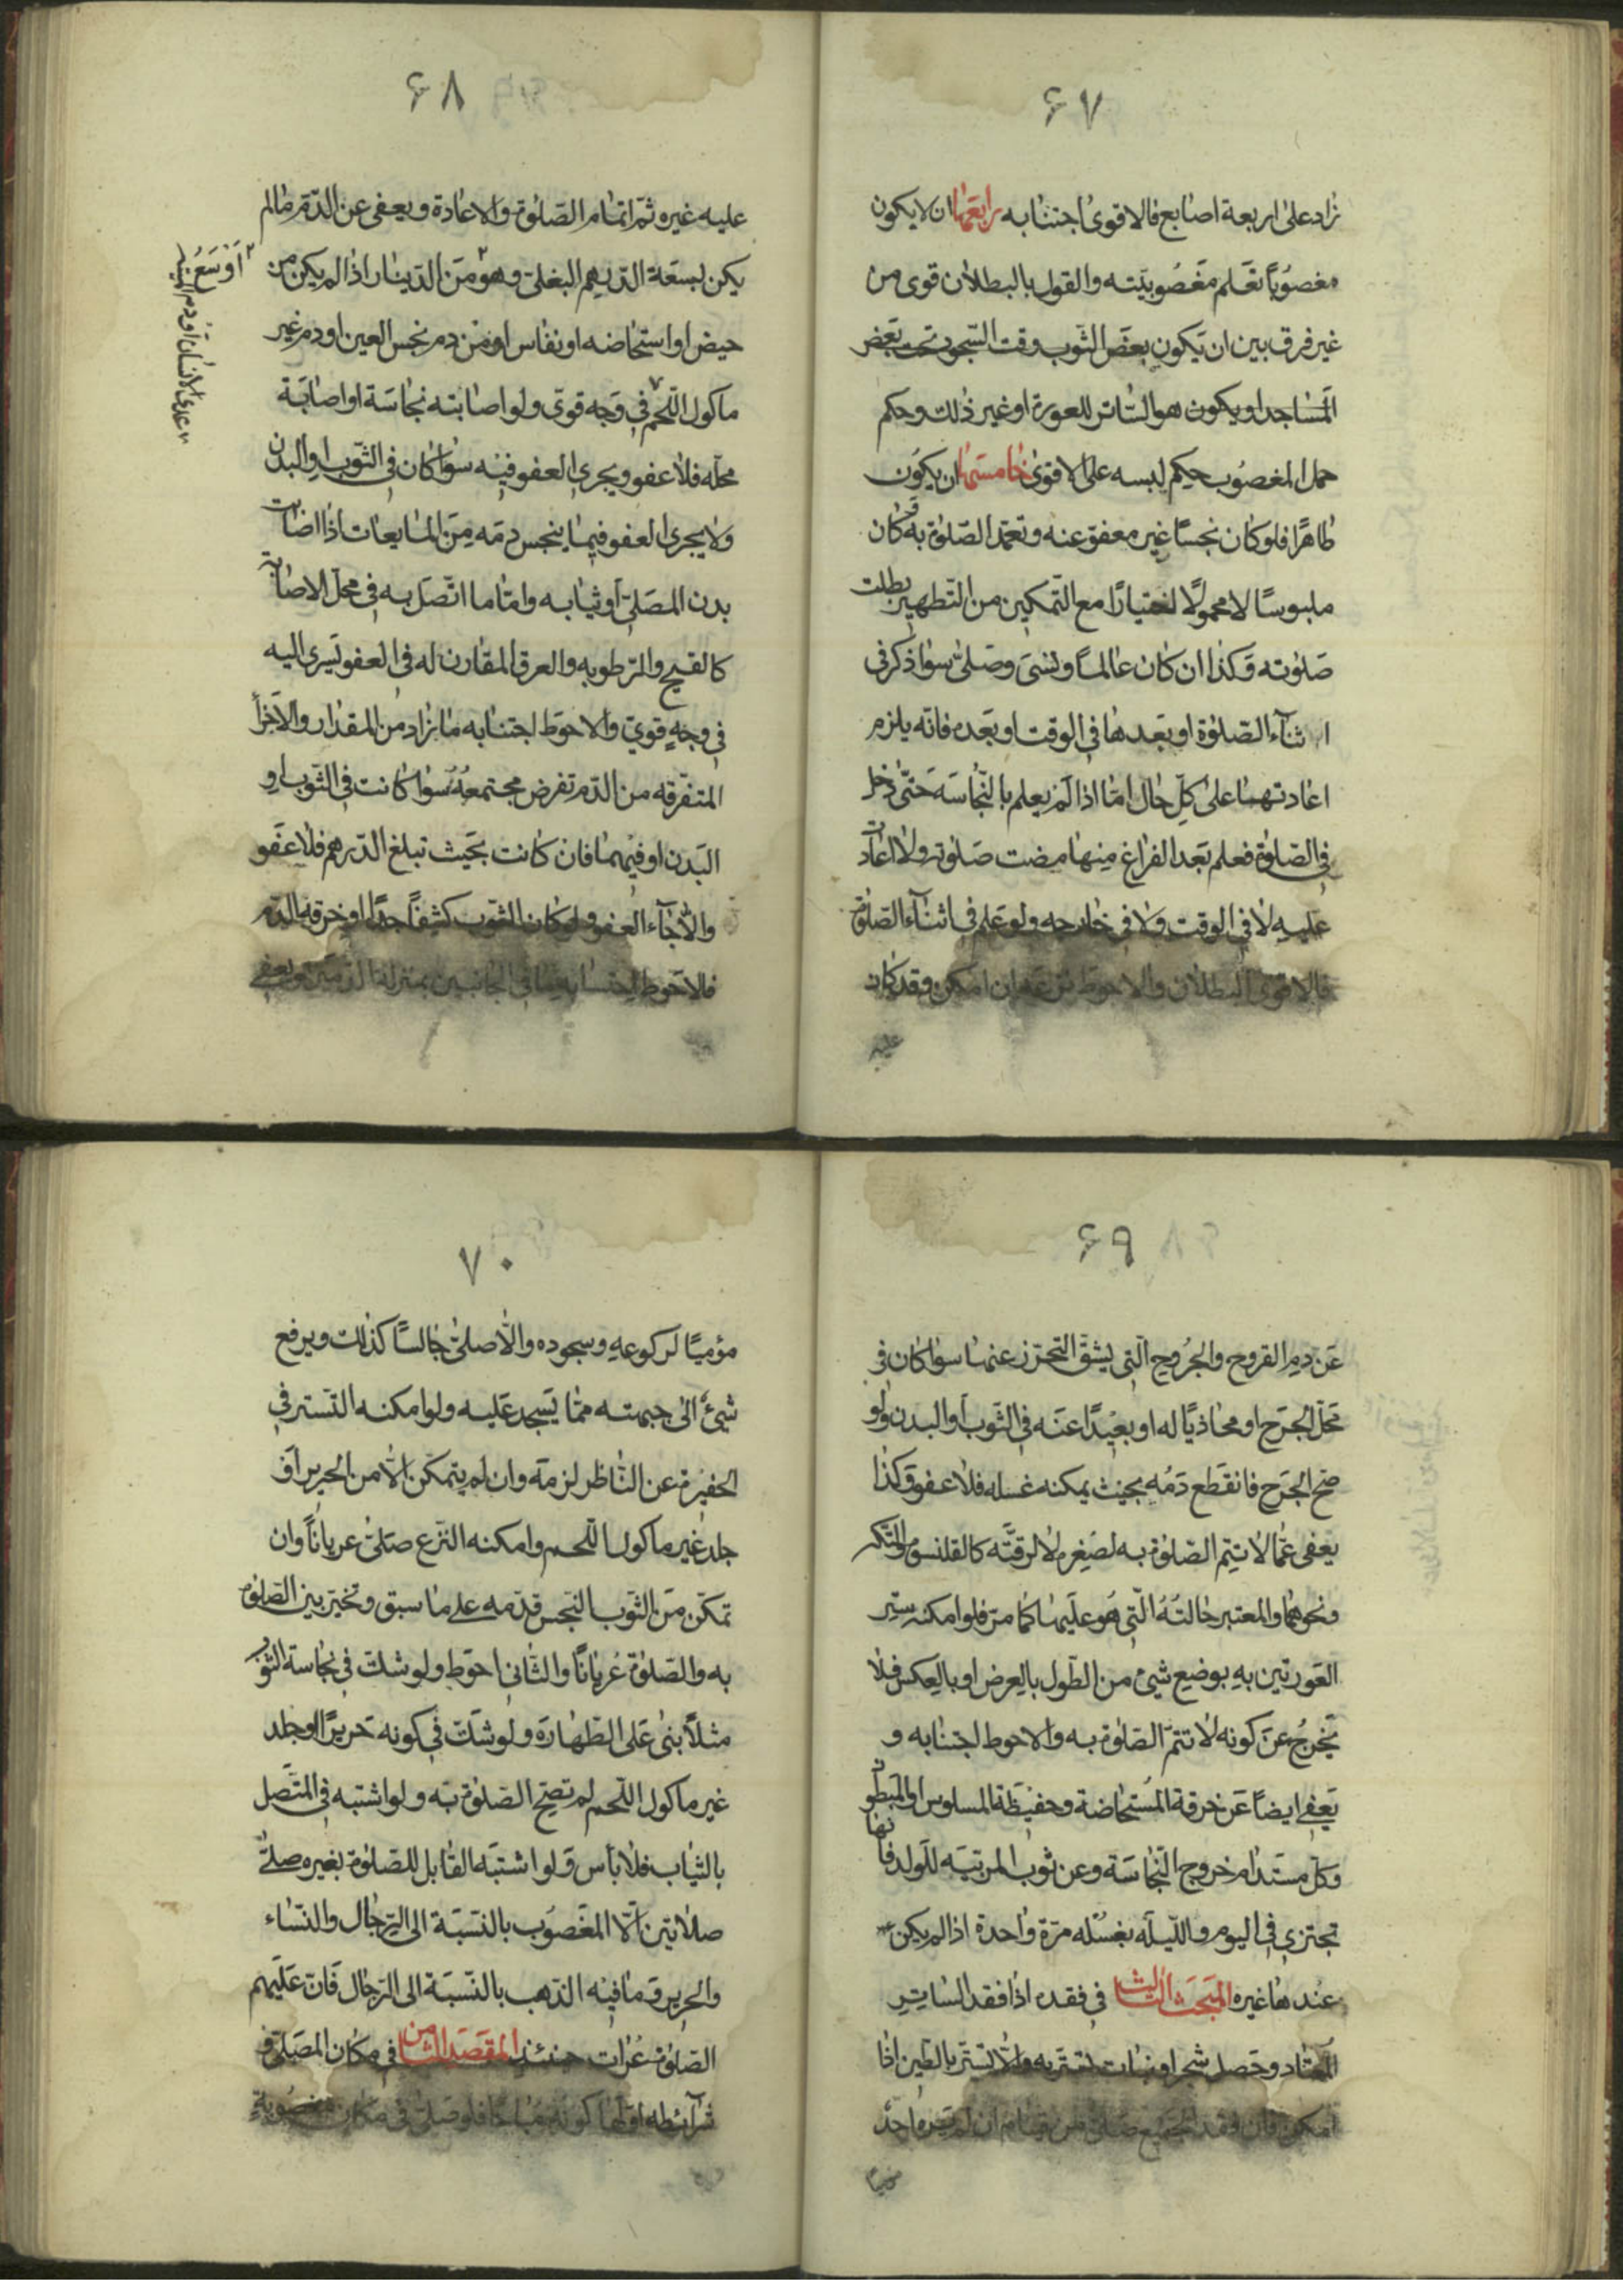 ۶۷
زاد على اربعة اصابع فالاقوى اجتنابه رابعها ان لا يكون
مغصوبًا تعلم مغصوبيّته والقول بالبطلان قوى من
غير فرق بين ان يكون بعض الثوب وقت السّجود تحت بعض
المساجد او يكون هو الساتر للعورة او غير ذلك وحكم
حمل المغصوب حكم لبسه على الاقوى خامسها ان يكون
طاهرًا فلو كان نجسًا غير معفوّ عنه وتعمّد الصّلوة به وكان
ملبوسًا لا محمولًا اختيارًا مع التّمكين من التّطهير بطلت
صلوته وكذا ان كان عالمًا ونسى وصلّى سواء ذكر فى
اثناء الصّلوة او بعدها فى الوقت او بعده فانّه يلزم
اعادتهما على كلّ حال امّا اذا لم يعلم بالنّجاسة حتّى دخل
فى الصّلوة فعلم بعد الفراغ منها مضت صلوته ولا اعادة
عليه لا فى الوقت ولا فى خارجه ولو علم فى اثناء الصّلوة
فالاقوى البطلان والاحوط نزعه ان امكن وقد كان
عليه
۶۸
عليه غيره ثمّ اتمام الصّلوة والاعادة ويعفى عن الدّم مالم
يكن لسعة الدّرهم البغلىّ وهو من الدّينار اذا لم يكن من
حيض او استحاضه او نفاس او من دم نجس العين او دم غير
ماكول اللّحم فى وجه قوىّ ولو اصابته نجاسة او اصابة
محلّه فلا عفو ويجرى العفو فيه سواء كان فى الثّوب او البدن
ولا يجرى العفو فيما ينجس دمّه من المايعات اذا اصابت
بدن المصلّى او ثيابه وامّا ما اتّصل به فى محلّ الاصابة
كالقيح والرّطوبه والعرق المقارن له فى العفو يسرى اليه
فى وجهٍ قوىّ والاحوط اجتنابه ما زاد من المقدار والاجزاء
المتفرّقه من الدّم تفرض مجتمعةً سواء كانت فى الثّوب او
البدن او فيهما فان كانت بحيث تبلغ الدّرهم فلا عفو
والّا جاء العفو ولو كان الثّوب كثيفًا جدًّا او خرقه الدّم
فالاحوط احتساب ما فى الجانبين بمنزلة الدّمين ويعفى
اوسع
۶۹
عن دم القروح والجروح الّتى يشقّ التّحرّز عنها سواء كان فى
محلّ الجرح او محاذيًا له او بعيدًا عنه فى الثّوب او البدن ولو
صحّ الجرح فانقطع دمه بحيث يمكنه غسله فلا عفو وكذا
يعفى عمّا لا تتمّ الصّلوة به لصغره لا لرقّته كالقلنسوة والتّكّه
ونحوهما والمعتبر حالته الّتى هو عليها كما مرّ فلو امكنه ستر
العورتين به بوضع شىء من الطّول بالعرض او بالعكس فلا
يخرج عن كونه لا تتمّ الصّلوة به والاحوط اجتنابه و
يعفى ايضاً عن خرقة المستحاضة وحفيظة المسلوس او المبطون
وكلّ مستدام خروج النّجاسة وعن ثوب المربّيه للولد فانها
تجتزى فى اليوم والليلة بغسله مرّة واحدة اذا لم يكن
عندها غيره المبحث الثالث فى فقده اذا فقد الساتر
المعتاد وحصل شجر او نبات تستّر به والّا تستّر بالطّين اذا
امكن فان فقد الجميع صلّى من قيام ان لم يره احد
مؤميًا
۷۰
مؤميًا لركوعه وسجوده والّا صلّى جالسًا كذلك ويرفع
شىء الى جبهته ممّا يسجد عليه ولو امكنه التستّر فى
الحفيرة عن النّاظر لزمه وان لم يتمكّن الّا من الحرير او
جلد غير ماكول اللّحم وامكنه النّزع صلّى عرياناً وان
تمكّن من الثّوب النّجس قدّمه على ما سبق وتخيّر بين الصّلوة
به والصّلوة عُريانًا والثّانى احوط ولو شكّ فى نجاسة الثّوب
مثلًا بنى على الطّهارة ولو شكّ فى كونه حريرًا او جلد
غير ماكول اللّحم لم تصحّ الصّلوة به ولو اشتبه فى المتّصل
بالثّياب فلا بأس ولو اشتبه القابل للصّلوة بغيره صلّى
صلاتين الّا المغصوب بالنّسبة الى الرّجال والنّساء
والحرير وما فيه الذّهب بالنّسبة الى الرّجال فانّ عليهم
الصّلوة عُراة حينئذٍ المقصد الثامن فى مكان المصلّى و
شرائطه اوّلها كونه مباحًا فلو صلّى فى مكان مغصوبة